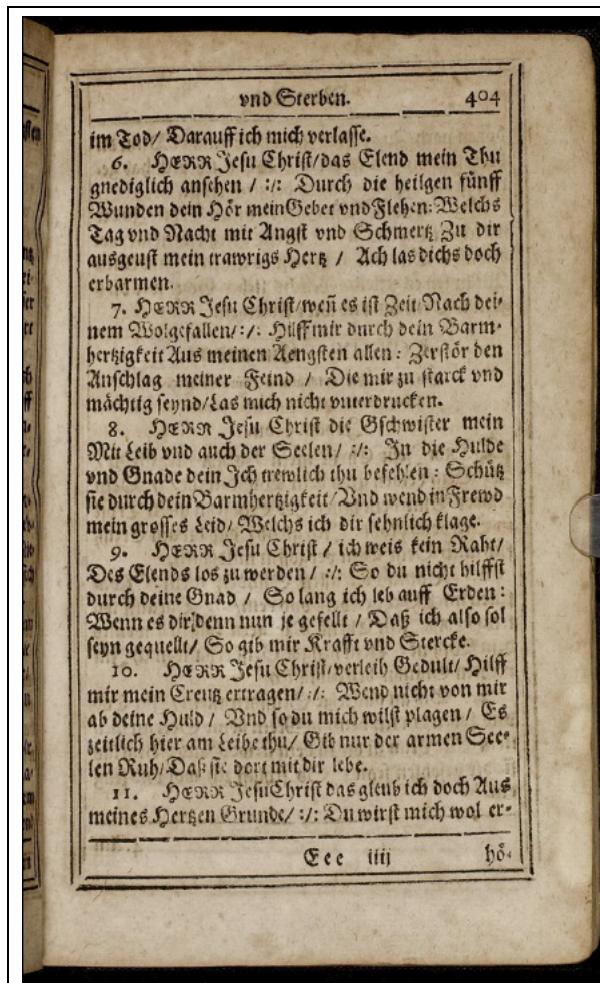 vnd Sterben. 404
im Tod/ Darauff ich mich verlasse.
6. HERR Jesu Christ/das Elend mein Thu
gnediglich ansehen / :/: Durch die heilgen fünff
Wunden dein Hör mein Gebet vnd Flehen: Welchs
Tag vnd Nacht mit Angst vnd Schmertz Zu dir
ausgeust mein trawrigs Hertz / Ach las dichs doch
erbarmen.
7. HERR Jesu Christ/weñ es ist Zeit Nach dei-
nem Wolgefallen/:/: Hilff mir durch dein Barm-
hertzigkeit Aus meinen Aengsten allen: Zerstör den
Anschlag meiner Feind / Die mir zu starck vnd
mächtig seynd/Las mich nicht vnterdrucken.
8. HERR Jesu Christ die Gschwister mein
Mit Leib vnd auch der Seelen/ :/: In die Hulde
vnd Gnade dein Ich trewlich thu befehlen: Schütz
sie durch dein Barmhertzigkeit/Vnd wend in Frewd
mein grosses Leid/ Welchs ich dir sehnlich klage.
9. HERR Jesu Christ / ich weis kein Raht/
Des Elends los zu werden / :/: So du nicht hilffst
durch deine Gnad / So lang ich leb auff Erden:
Wenn es dir denn nun je gefellt / Daß ich also sol
seyn gequellt/ So gib mir Krafft vnd Stercke.
10. HERR Jesu Christ/verleih Gedult/ Hilff
mir mein Creutz ertragen/:/: Wend nicht von mir
ab deine Huld / Vnd so du mich wilst plagen / Es
zeitlich hier am Leibe thu/ Gib nur der armen See-
len Ruh/Daß sie dort mit dir lebe.
11. HERR Jesu Christ das gleub ich doch Aus
meines Hertzen Grunde/ :/: Du wirst mich wol er-
Eee iiij hö-